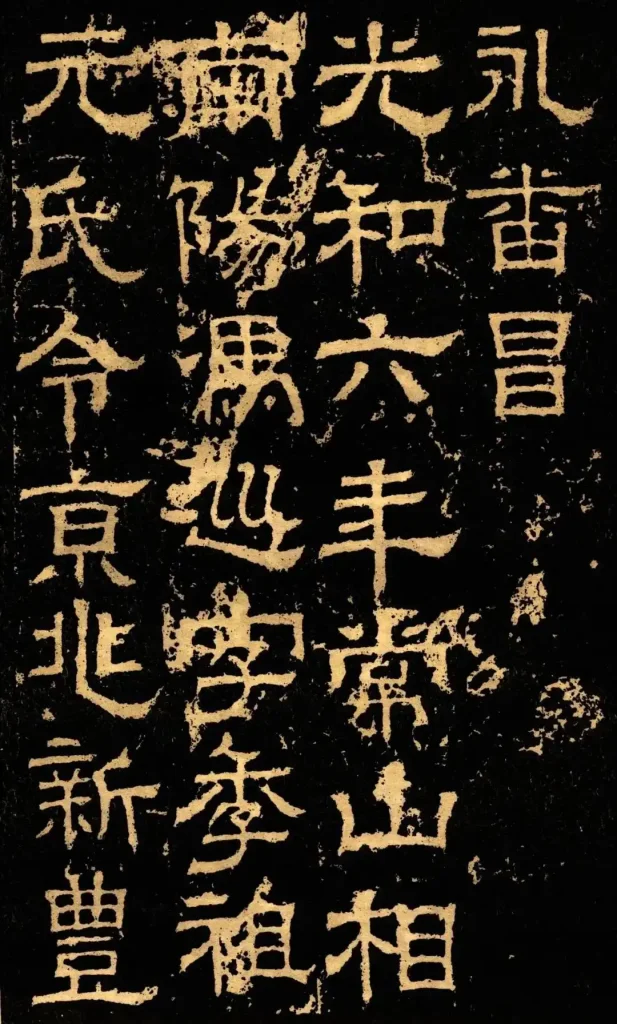 永番昌
光和六年常山相
南陽馮巡字季祖
元氏令京兆新豐